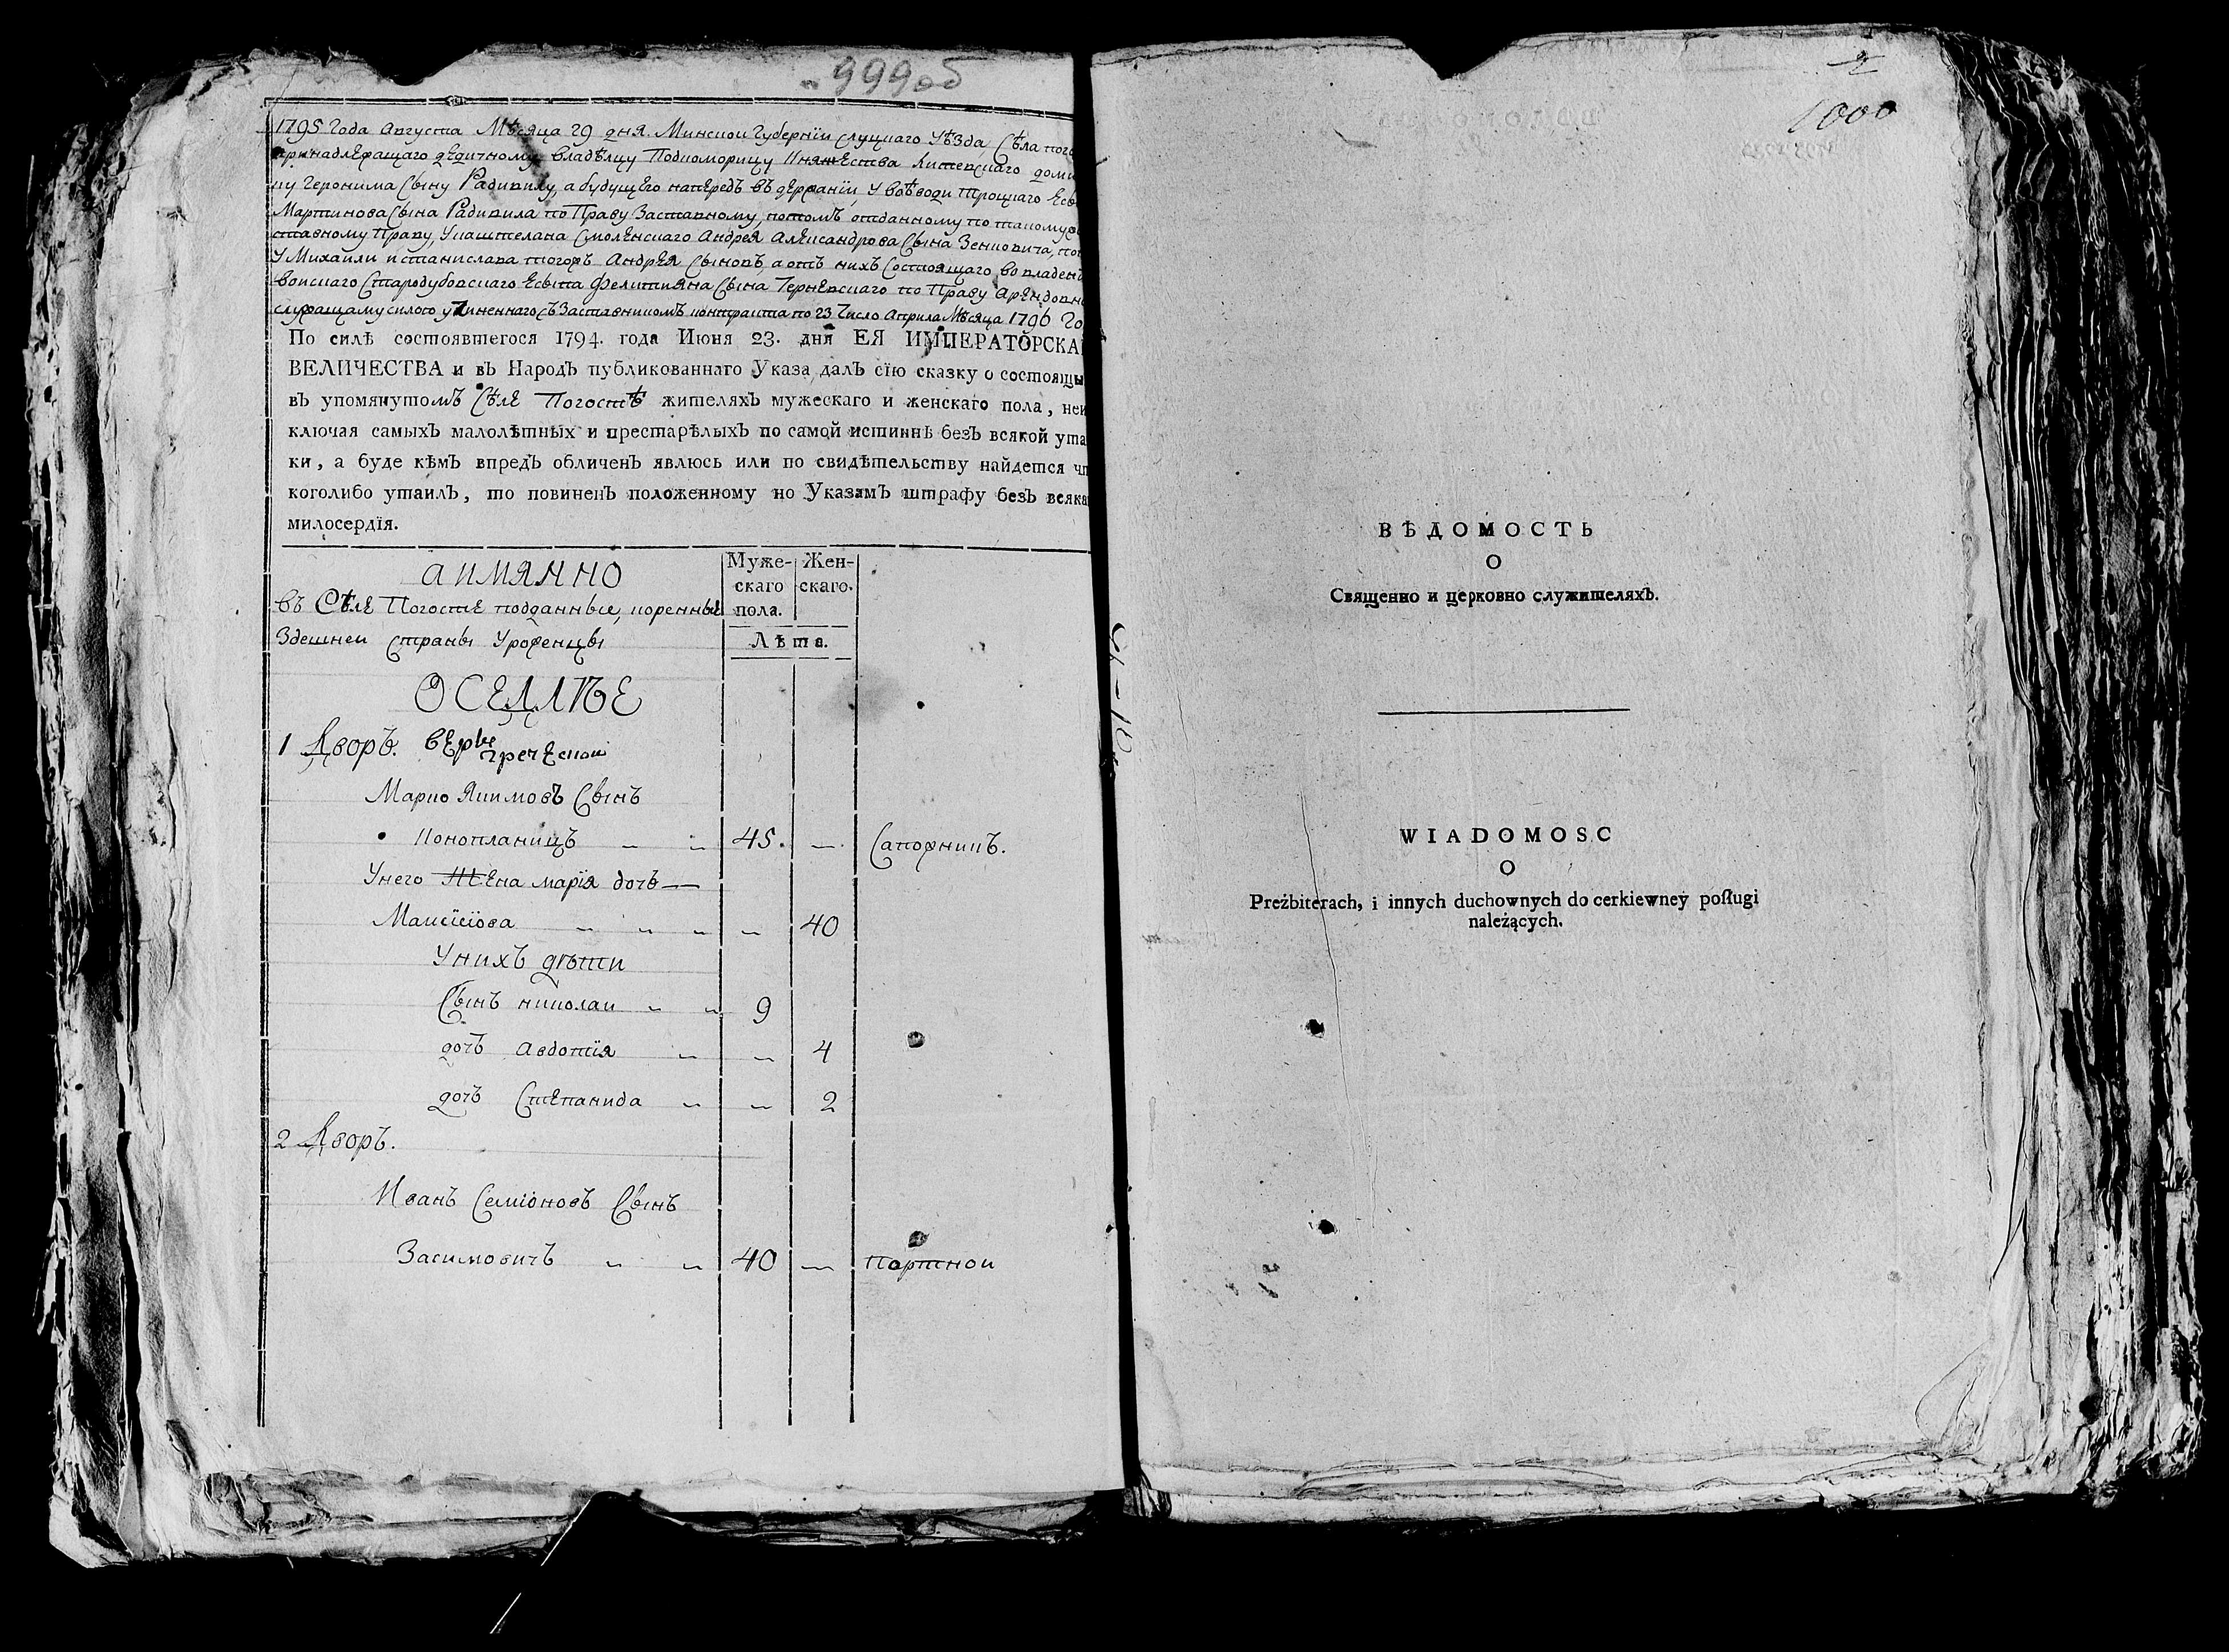 999 об
1795 Года Августа Мѣсяца 29 дня Минской Губернїи Слуцкаго Уѣзда, Сѣла
принадлежащаго дедичному владѣлцу Подкоморицу Княжества Литевскаго
Геронима Сыну Радивилу, а будущего напередъ въ держанїи, у воѣводи Троцкаго
Мартинова Сына Радивила по Праву Заставному, потомъ отданному по такому
ставному Праву, У каштелана Смоленскаго Андрея Александрова Сына Зенковича,
У Михаили и станислава тогожъ Андрея Сыновъ, а отъ нихъ Состоящаго во владен
воискаго Стародубовскаго Феликияна Сына Терневскаго по Праву
служащему силою учиненнаго съ Заставникомъ контракта по 23 Число Априла Мѣсяца 1796
По силѣ состоявшегося 1794. года Июня 23. дня ЕЯ ИМПЕРАТОРСКА
ВЕЛИЧЕСТВА и въ Народъ публикованнаго Указа далъ сїю сказку о состоящи
въ упомянутомъ Сѣле Погостѣ жителяхъ мужескаго и женскаго пола, неи
ключая самыхъ малолѣтныхъ и престарѣлыхъ по самой истиннѣ безъ всякой ута
ки, а буде кѣмъ впредъ обличенъ явлюсь или по свидѣтельству найдется чт
коголибо утаилъ, то повиненъ положенному но Указамъ штрафу безъ всяка
милосердїя.
АИМЯННО
Муже- Жен-
скаго скаго.
въ Сѣле Погосте подданные, коренные пола.
Здешнеи страны Уроженцы
Лѣта.
ОСЕДЛЫЕ
1 Дворъ. веры
греческои
Марко Якимовъ Сынъ
Конопланицъ 45. — Сапожникъ.
Унего Жена марїя дочь
Максїсїова 40
Унихъ дѣти
Сынъ николаи 9
дочь Авдотїя 4
дочь Степанида 2
2 Дворъ.
Иванъ Семїоновъ Сынъ
Засимовичъ 40 — Портнои
2
1000
ВѢДОМОСТЬ
О
Священно и церковно служителяхъ.
WIADOMOSC
O
Preżbiterach, i innych duchownych do cerkiewney poſługi
należących.